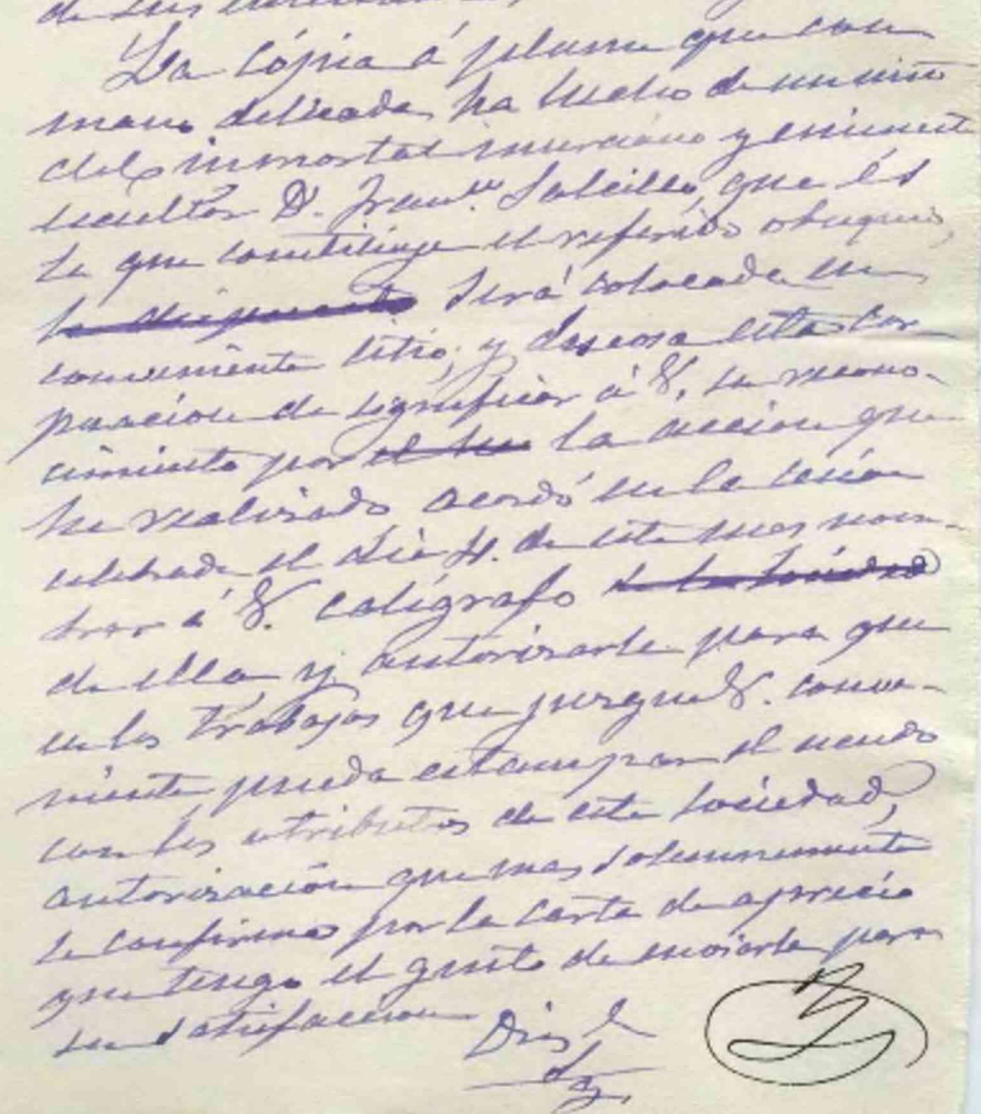 de sus
La cópia á pluma que con
mano delicada ha hecho de un niño
del inmortal murciano y eminente
escultor D. Franco. Salcillo, que és
la que constituye el referido obsequio,
será colocada en
conveniente sitio; y deseosa esta cor-
poracion de significar á V. su recono-
cimiento por el la accion que
ha realizado acordó en la sesión
celebrada el dia 4. de este mes nom-
brar á V. calígrafo de la Sociedad
de ella, y autorizarle para que
en los trabajos que juzgue V. conve-
niente pueda estampar el escudo
con los atributos de esta Sociedad,
autorización que mas solemnemente
le confirma por la carta de aprecio
que tengo el gusto de enviarle para
su satisfaccion
Dios &